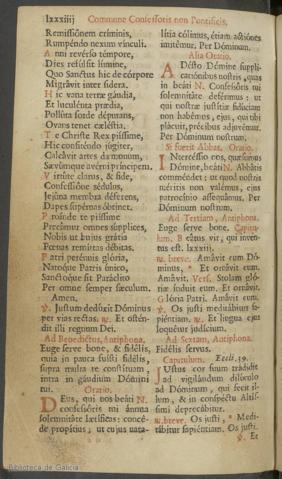 lxxxiiij Commune Confessoris non Pontificis.
Remissiônem críminis,
Rumpéndo nexum vínculi.
A nni revérso témpore,
Dies refúlsit lúmine,
Quo Sanctus hic de córpore
Migrávit inter sídera.
H ic vana terræ gáudia,
Et luculénta prædia,
Pollúta sorde députans,
Ovans tenet cæléstia.
T e Christe Rex piíssime,
Hic confiténdo júgiter,
Calcávit artes dæmonum,
Sævúmque avérni príncipem.
V irtúte clarus, & fide,
Confessióne sédulus,
Jejúna membra déferens,
Dapes supérnas óbtinet.
P roinde te piíssime
Precámur omnes súpplices,
Nobis ut hujus grátia
Pœnas remíttas débitas.
P atri perénnis glória,
Natóque Patris único,
Sanctóque sit Paráclito
Per omne semper sæculum.
Amen.
℣. Justum dedúxit Dóminus
per vias rectas. ℟. Et ostén-
dit illi regnum Dei.
Ad Benedictus, Antiphona.
Euge serve bone, & fidélis,
quia in pauca fuísti fidélis,
supra multa te constítuam,
intra in gáudium Dómini
tui. Oratio.
D Eus, qui nos beáti N.
confessóris tui ánnua
solemnitáte lætíficas: concé-
de propítius; ut cujus nata-
lítia cólimus, étiam actiónes
imitémur. Per Dóminum.
Alia Oratio.
A Desto Dómine suppli-
catiónibus nostris, quas
in beáti N. Confessóris tui
solemnitáte deférimus: ut
qui nostræ justítiæ fidúciam
non habémus, ejus, qui tibi
plácuit, précibus adjuvémur.
Per Dóminum nostrum.
Si fuerit Abbas, Oratio.
I Ntercéssio nos, quæsumus
Dómine, beáti N. Abbátis
comméndet: ut quod nostris
méritis non valémus, ejus
patrocínio assequámur. Per
Dóminum nostrum.
Ad Tertiam, Antiphona.
Euge serve bone. Capitu-
lum. B eátus vir, qui invén-
tus est. lxxxiij.
℟. breve. Amávit eum Dó-
minus, * Et ornávit eum.
Amávit. Vers. Stolam gló-
riæ índuit eum. Et ornávit.
G lória Patri. Amávit eum.
℣. Os justi meditábitur sa-
piéntiam. ℟. Et lingua ejus
loquétur judícium.
Ad Sextam, Antiphona.
Fidélis servus.
Capitulum. Eccli. 39.
J Ustus cor suum trádidit
ad vigilándum dilúculo
ad Dóminum, qui fecit il-
lum, & in conspéctu Altís-
simi deprecábitur.
℟. breve. Os justi, * Medi-
tábitur sapiéntiam. Os justi.
℣. Et
Biblioteca de Galicia